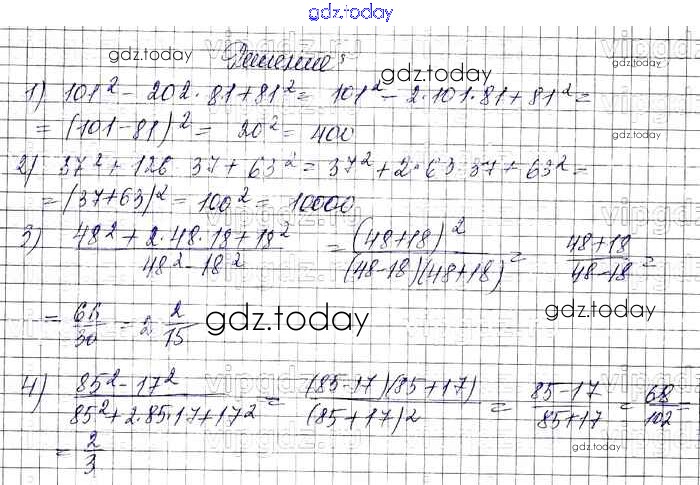 gdz.today
Решение:
gdz.today
gdz.today
1) 101² - 202·81 + 81² = 101² - 2·101·81 + 81² =
= (101-81)² = 20² = 400
2) 37² + 126·37 + 63² = 37² + 2·63·37 + 63² =
= (37+63)² = 100² = 10000
3) (48² + 2·48·18 + 18²)/(48² - 18²) = (48+18)²/((48-18)(48+18)) = (48+18)/(48-18) =
= 66/30 = 2 2/15
gdz.today
gdz.today
4) (85² - 17²)/(85² + 2·85·17 + 17²) = ((85-17)(85+17))/(85+17)² = (85-17)/(85+17) = 68/102 =
= 2/3
gdz.today